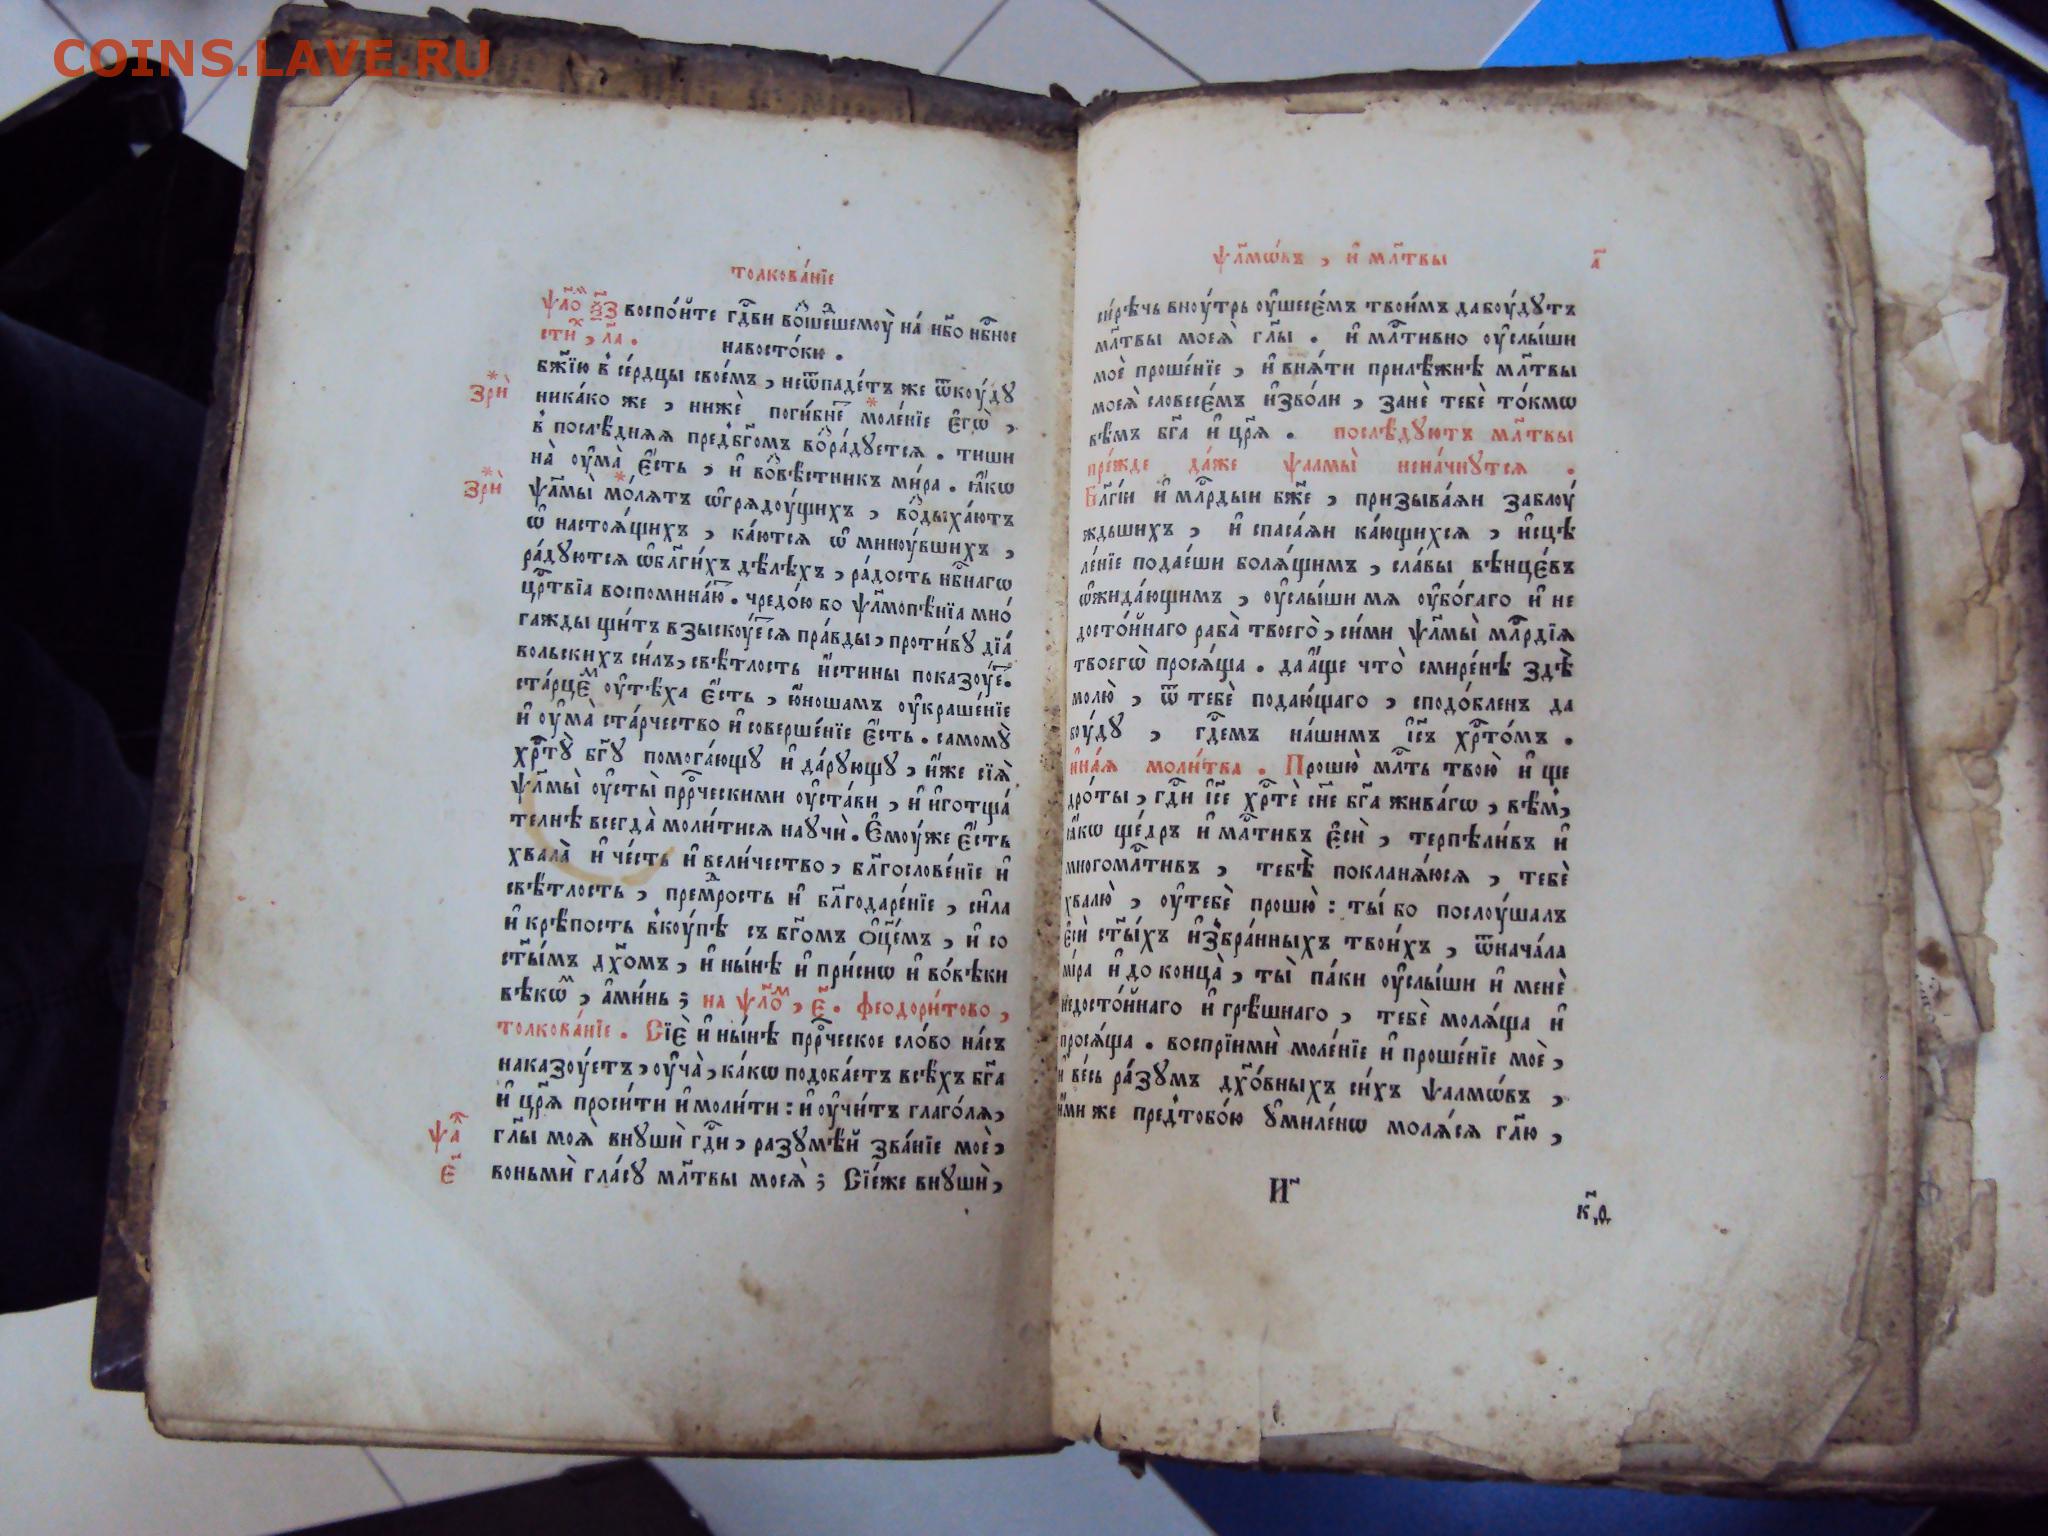 COINS.LAVE.RU
толкова́нїе
ѱало́ ѯ҃з воспо́йте гдⷭ҇ви воⷲше́шемоу̀ на́ нб҃о нбⷭ҇ное
сти́, ла҃. навосто́ки.
бж҃їю в се́рдцы свое́мъ, неѿпаде́тъ же ѿкоу́дꙋ
Зри̑ ника́ко же, нижѐ поги́бне моле́нїе є҆гѡ̀,
в после́дняя пред̾бг҃омъ воⷥра́дꙋется. тиши
на̀ оу҆ма̀ є҆́сть, и҆ воⷥвѣ́стникъ ми́ра. ꙗ҆́кѡ
Зри̑ ѱалмы̀ мо́лятъ ѡ҆грядоу́щихъ, воⷥдыха́ютъ
ѡ҆ настоя́щихъ, ка́ются ѡ҆ миноу́вшихъ,
ра́дꙋются ѡ҆бл҃ги́хъ дѣ́лѣхъ, ра́дость нбⷭ҇нагѡ
црⷭ҇твїа воспомина́ю. чредо́ю бо ѱалмопѣ́нїа мно́
гажды щи́тъ взыскоу́ется пра́вды, проти́вꙋ дїа́
вольскихъ си́лъ, свѣ́тлость и҆́стины показоу́е.
ста́рцеⷨ оу҆тѣ́ха є҆́сть, ю҆́ношамъ оу҆краше́нїе
и҆ оу҆ма̀ ста́рчество и҆ соверше́нїе є҆́сть. самомꙋ̀
хрⷭ҇тꙋ̀ бг҃ꙋ помога́ющꙋ и҆ да́рꙋющꙋ, и҆́же сїя̀
ѱалмы̀ оу҆сты̀ прⷪ҇рческими оу҆ста́ви, и҆ и҆готща́
телнѣ всегда̀ моли́тися наꙋчѝ. Є҆моу́же є҆́сть
хвала̀ и҆ че́сть и҆ вели́чество, бл҃гослове́нїе и҆
свѣ́тлость, премⷣрость и҆ бл҃годаре́нїе, си́ла
и҆ крѣ́пость вкоу́пѣ съ бг҃омъ ѻ҆ц҃е́мъ, и҆ со
ст҃ы́мъ дх҃омъ, и҆ ны́нѣ и҆ при́снѡ и҆ во́вѣки
вѣкѡⷨ, а҆ми́нь; на ѱало́ⷨ, є҃. феодори́тово,
толкова́нїе. Сїѐ и҆ ны́нѣ прⷪ҇рческое сло́во на́съ
наказоу́етъ, оу҆ча̀, ка́кѡ подоба́етъ всѣ́хъ бг҃а
и҆ цр҃я проси́ти и҆ моли́ти: и҆ оу҆чи́тъ глаго́ля,
ѱа гл҃ы моя̀ внꙋшѝ гдⷭ҇и, разꙋмѣ́й зва́нїе моѐ,
є҃ воньмѝ гла́сꙋ мл҃твы моея̀; Сїе́же внꙋшѝ,
ѱалмѡ́въ, и҆ мл҃твы а҃
си́рѣчь вноу́трь оу҆шесе́мъ твои́мъ дабоу́дꙋтъ
мл҃твы моея̀ гл҃ы. и҆ млⷭ҇тивно оу҆слы́ши
моѐ проше́нїе, и҆ вня́ти прилѣ́жнѣ мл҃твы
моея̀ словесе́мъ и҆зво́ли, занѐ тебѐ то́кмѡ
вѣ́мъ бг҃а и҆ цр҃я. послѣ́дꙋютъ мл҃твы
пре́жде да́же ѱалмы̀ нена́чнꙋтся.
Бл҃гі́и и҆ млⷭ҇рдыи бж҃е, призыва́яи заблоу́
ждьшихъ, и҆ спаса́яи ка́ющихся, и҆сцѣ
ле́нїе подае́ши боля́щимъ, сла́вы вѣнце́въ
ѡ҆жида́ющимъ, оу҆слы́ши мя оу҆бо́гаго и҆ не
досто́йнаго раба̀ твоего̀, си́ми ѱалмы̀ млⷭ҇рдїя
твоегѡ̀ прося́ща. да а҆́ще что̀ смире́нѣ здѣ̀
молю̀, ѿ тебѐ подаю́щаго, сподо́бленъ да
боу́дꙋ, гдⷭ҇емъ на́шимъ і҆с҃ъ хрⷭ҇то́мъ.
и҆на́я моли́тва. Прошю̀ млⷭ҇ть твою̀ и҆ ще
дро́ты, гдⷭ҇и і҆с҃е хрⷭ҇тѐ сн҃е бг҃а жива́гѡ, вѣ́мъ,
ꙗ҆́кѡ ще́дръ и҆ млⷭ҇тивъ є҆сѝ, терпѣли́въ и҆
многомлⷭ҇тивъ, тебѣ̀ покланя́юся, тебѐ
хвалю̀, оу҆тебѐ прошю̀: ты́ бо послоу́шалъ
є҆сѝ ст҃ы́хъ и҆збра́нныхъ твои́хъ, ѿнача́ла
ми́ра и҆ до конца̀, ты̀ па́ки оу҆слы́ши и҆ менѐ
недосто́йнаго и҆ грѣ́шнаго, тебѐ моля́ща и҆
прося́ща. воспрїимѝ моле́нїе и҆ проше́нїе моѐ,
и҆ ве́сь ра́зꙋмъ дх҃о́вныхъ си́хъ ѱалмѡ́въ,
и҆́ми же пред̾тобо́ю ᲂу҆миле́нѡ моля́ся гл҃ю,
И҃ к҃д